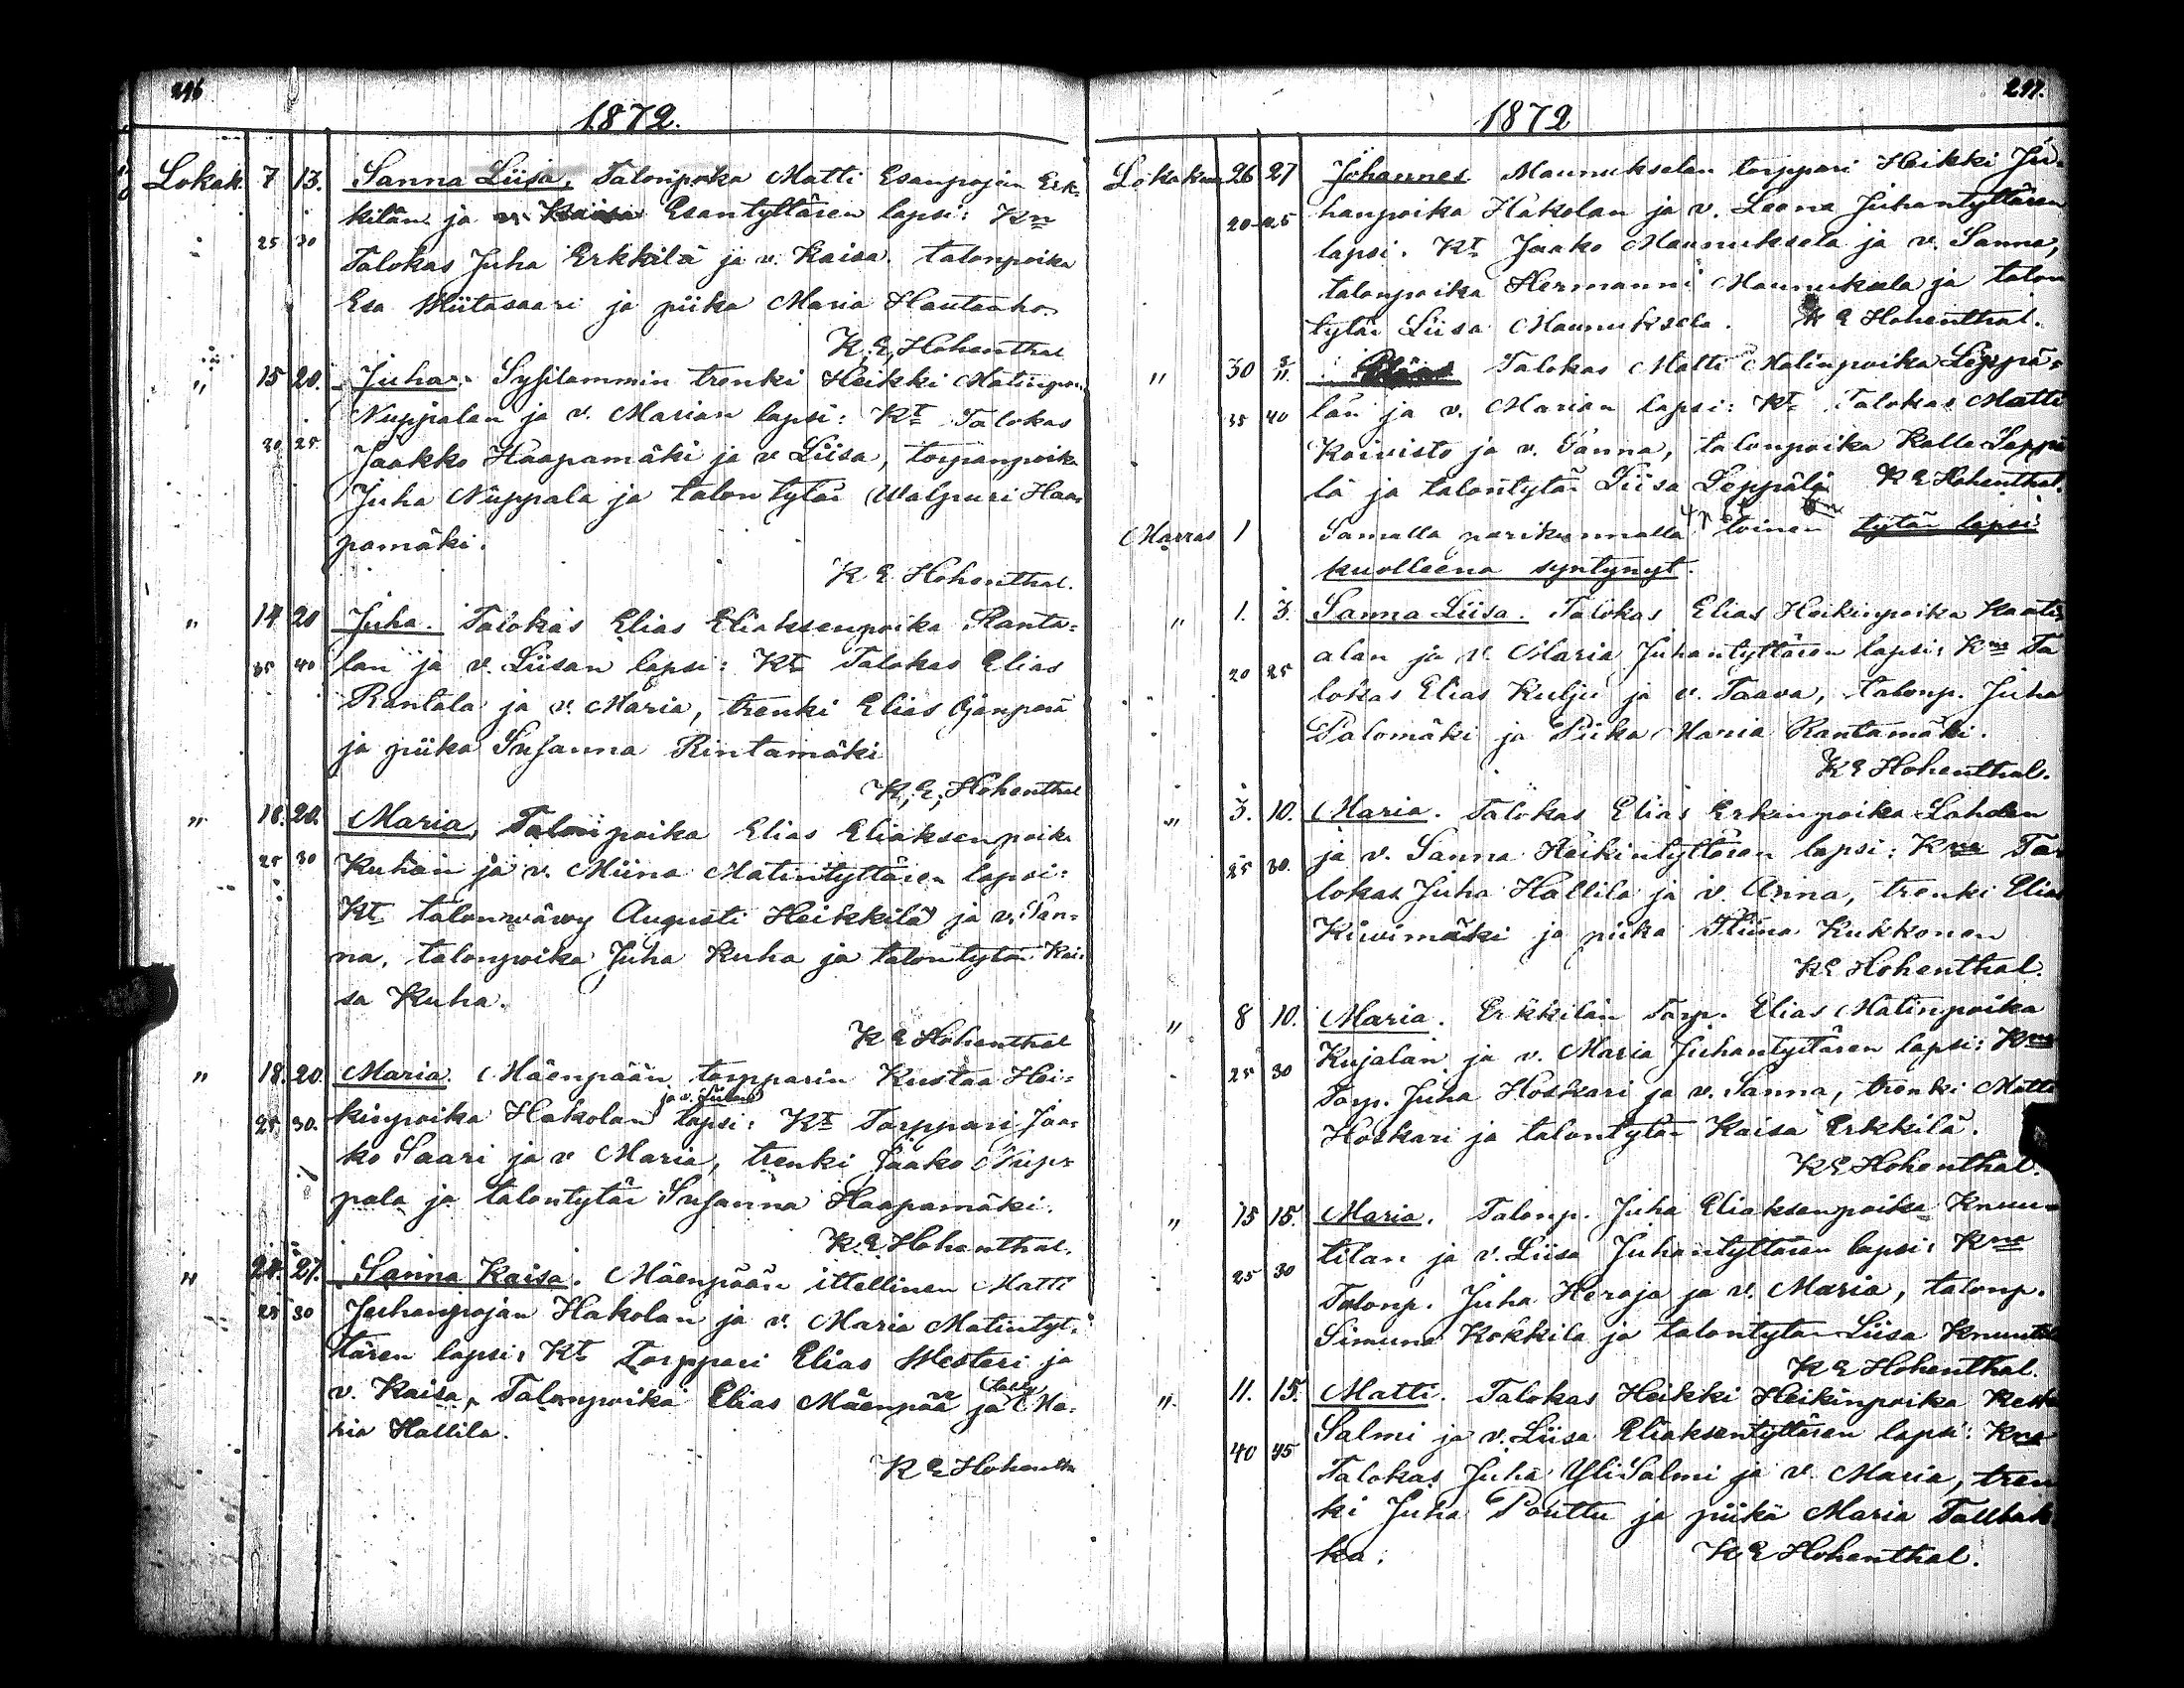 296
1872.
Lokak. 7 13. Sanna Liisa, Talonpoka Matti Esanpojan Erk-
kilän ja v. Kaisa Esantyttären lapsi: Kn
25 30
Talokas Juha Erkkilä ja v. Kaisa. talonpoika
Esa Wiitasaari ja piika Maria Hautanho
K, E, Hohenthal
" 15 20. Juha. Sysilammin trenki Heikki Matinpoi.
Nuppalan ja v. Marian lapsi: Kt Talokas
30 25 Jaakko Haapamäki ja v Liisa, torpanpoika
Juha Nuppala ja talon tytär Walpuri Haa-
pamäki.
K E Hohenthal.
" 14 20 Juha. Talokas Elias Eliaksenpoika Ranta=
35 40 lan ja v. Liisan lapsi: Kt Talokas Elias
Rantala ja v. Maria, trenki Elias Ojanperä
ja piika Susanna Rintamäki
K, E, Hohenthal
" 18. 20. Maria, Talonpoika Elias Eliaksenpoik.
25 30 Kuhan ja v. Miina Matintyttären lapsi:
Kt talonwäwy Augusti Heikkilä ja v. San=
na, talonpoika Juha Kuha ja talontytär Kai.
sa Kuha.
K E Hohenthal
" 18. 20 Maria. Mäenpään torpparin Kustaa Hei=
ja v.
25 30. kinpoika Hakolan lapsi: Kt Torppari Jaa=
ko Saari ja v Maria, trenki Jaako Nupp=
pala ja talontytär Susanna Haapamäki.
K. E Hohenthal.
" 24. 27. Sanna Kaisa. Mäenpään ittellinen Matti
25 30 Juhanpojan Hakolan ja v. Maria Matintyt.
tären lapsi: Kt Torppari Elias Westeri ja
v. Kaisa, Talonpoika Elias Mäenpää ja Ma=
ria Hallila.
K E Hohenth
297.
1872
Lokakuu 26 27 Johannes. Maunukselan torppari Heikki Ju-
20 25 hanpoika Hakolan ja v. Leena Juhantyttären
lapsi. Kt Jaako Maunuksela ja v. Sanna,
talonpoika Hermanni Maunuksela ja talon
tytär Liisa Maunuksela. K E Hohenthal.
" 30 3/11. Talokas Matti Matinpoika Leppä=
35 40 län ja v. Marian lapsi: Kt Talokas Matti
Koivisto ja v. Sanna, talonpoika Kalle Leppä
lä ja talontytär Liisa Leppälä K E Hohenthal.
Marras 1 Samalla parikunnalla toinen tytär lapsi
kuolleena syntynyt.
" 1. 3. Sanna Liisa. Talokas Elias Heikinpoika Kaati
20 25 alan ja v. Maria Juhantyttären lapsi: Kms Ta
lokas Elias Kulju ja v. Taava, talonp. Juha
Palomäki ja Piika Maria Rantamäki.
K E Hohenthal.
" 3. 10. Maria. Talokas Elias Erkinpoika Lahden
25 30. ja v. Sanna Heikintyttären lapsi: Kna Ta-
lokas Juha Hallila ja v. Anna, trenki Elias
Kiwimäki ja piika Stiina Kukkonen
K E Hohenthal.
" 8 10. Maria. Erkkilän Torp. Elias Matinpoika
25 30 Kujalan ja v. Maria Juhantyttären lapsi: Kms
Torp. Juha Hoskari ja v. Sanna, trenki Matti
Hoskari ja talontytär Kaisa Erkkilä.
K E Hohenthal.
" 15 15. Maria. Talonp. Juha Eliaksenpoika Knuu=
25 30 tilan ja v. Liisa Juhantyttären lapsi: Kna
Talonp. Juha Heroja ja v. Maria, talonp.
Simuna Kokkila ja talontytär Liisa Knuutil
K E Hohenthal.
" 11. 15. Matti. Talokas Heikki Heikinpoika Kesk
40 45 Salmi ja v. Liisa Eliaksentyttären lapsi: Kna
Talokas Juha YliSalmi ja v. Maria, tren
ki Juha Pouttu ja piika Maria Tallbak
ka.
K E Hohenthal.